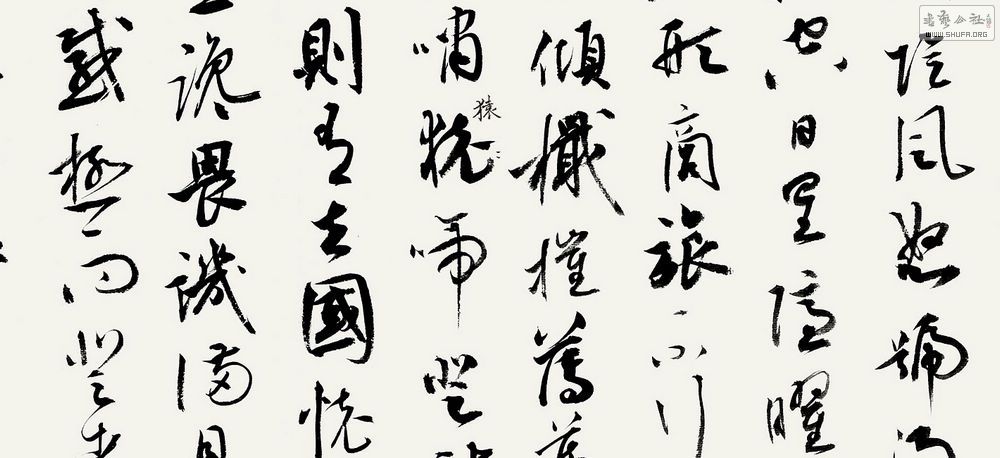 陰風怒號濁
空日星隱曜
形商旅不行
傾檝摧薄暮
嘯猿啼登
則有去國懷
讒畏譏滿目
感極而悲者
書藝公社
WWW.SHUFA.ORG